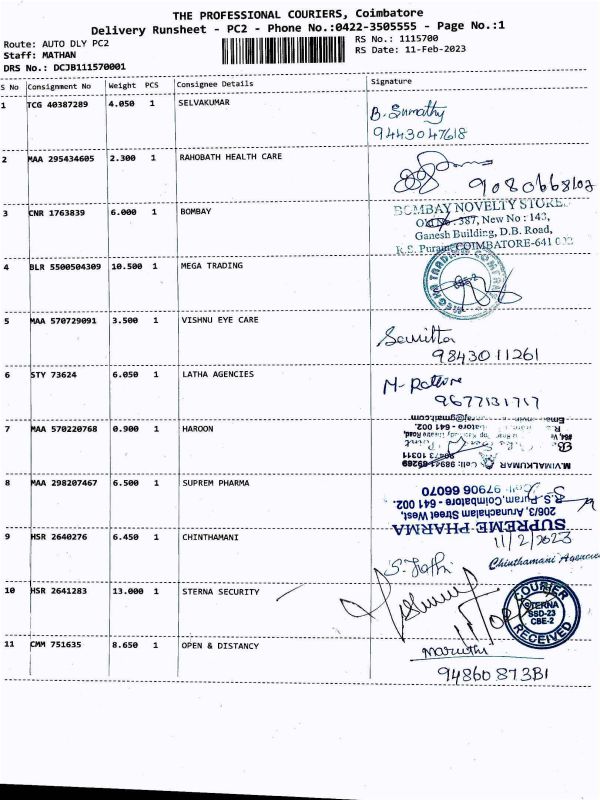 THE PROFESSIONAL COURIERS, Coimbatore
Delivery Runsheet - PC2 - Phone No.:0422-3505555 - Page No.:1
Route: AUTO DLY PC2
RS No.: 1115700
Staff: MATHAN
RS Date: 11-Feb-2023
DRS No.: DCJB111570001
S No Consignment No Weight PCS Consignee Details Signature
1 TCG 40387289 4.050 1 SELVAKUMAR
B. Sumathy
9443047618
2 MAA 295434605 2.300 1 RAHOBATH HEALTH CARE
9080668102
3 CNR 1763839 6.000 1 BOMBAY
BOMBAY NOVELTY STORES
Old No: 387, New No: 143,
Ganesh Building, D.B. Road,
R.S. Puram, COIMBATORE-641 002
4 BLR 5500504309 10.500 1 MEGA TRADING
5 MAA 570729091 3.500 1 VISHNU EYE CARE
9843011261
6 STY 73624 6.050 1 LATHA AGENCIES
9677131717
7 MAA 570220768 0.900 1 HAROON
M.VIMALKUMAR
8 MAA 298207467 6.500 1 SUPREM PHARMA
SUPREME PHARMA
206/3, Arunachalam Street West,
R.S.Puram, Coimbatore - 641 002.
Cell: 97906 66070
9 HSR 2640276 6.450 1 CHINTHAMANI
11/2/2023
Chinthamani Agencies
10 HSR 2641283 13.000 1 STERNA SECURITY
COURIER
STERNA
SSD-23
CBE-2
RECEIVED
11 CMM 751635 8.650 1 OPEN & DISTANCY
Maruthi
9486087381